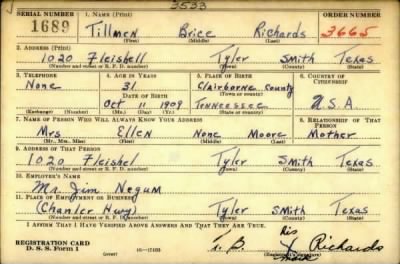 3533
SERIAL NUMBER
1. NAME (Print)
ORDER NUMBER
1689
Tillmen Brice Richards
3665
(First) (Middle) (Last)
2. ADDRESS (Print)
1020 Fleishell Tyler Smith Texas
(Number and street or R. F. D. number) (Town) (County) (State)
3. TELEPHONE
4. AGE IN YEARS
5. PLACE OF BIRTH
6. COUNTRY OF CITIZENSHIP
None
31
Clairborne County
DATE OF BIRTH
(Town or county)
Oct 11 1909
Tonneessee
U.S.A
(Exchange) (Number)
(Mo.) (Day) (Yr.)
(State or country)
7. NAME OF PERSON WHO WILL ALWAYS KNOW YOUR ADDRESS
8. RELATIONSHIP OF THAT PERSON
Mrs Ellen None Moore Mother
(Mr., Mrs., Miss) (First) (Middle) (Last)
9. ADDRESS OF THAT PERSON
1020 Fleishel Tyler Smith Texas
(Number and street or R. F. D. number) (Town) (County) (State)
10. EMPLOYER'S NAME
Mr. Jim Negum
11. PLACE OF EMPLOYMENT OR BUSINESS
Chanler Hwy Tyler Smith Texas
(Number and street or R. F. D. number) (Town) (County) (State)
I AFFIRM THAT I HAVE VERIFIED ABOVE ANSWERS AND THAT THEY ARE TRUE.
REGISTRATION CARD
D. S. S. FORM 1
T. B. His X Richards
mark
(Registrant's signature)